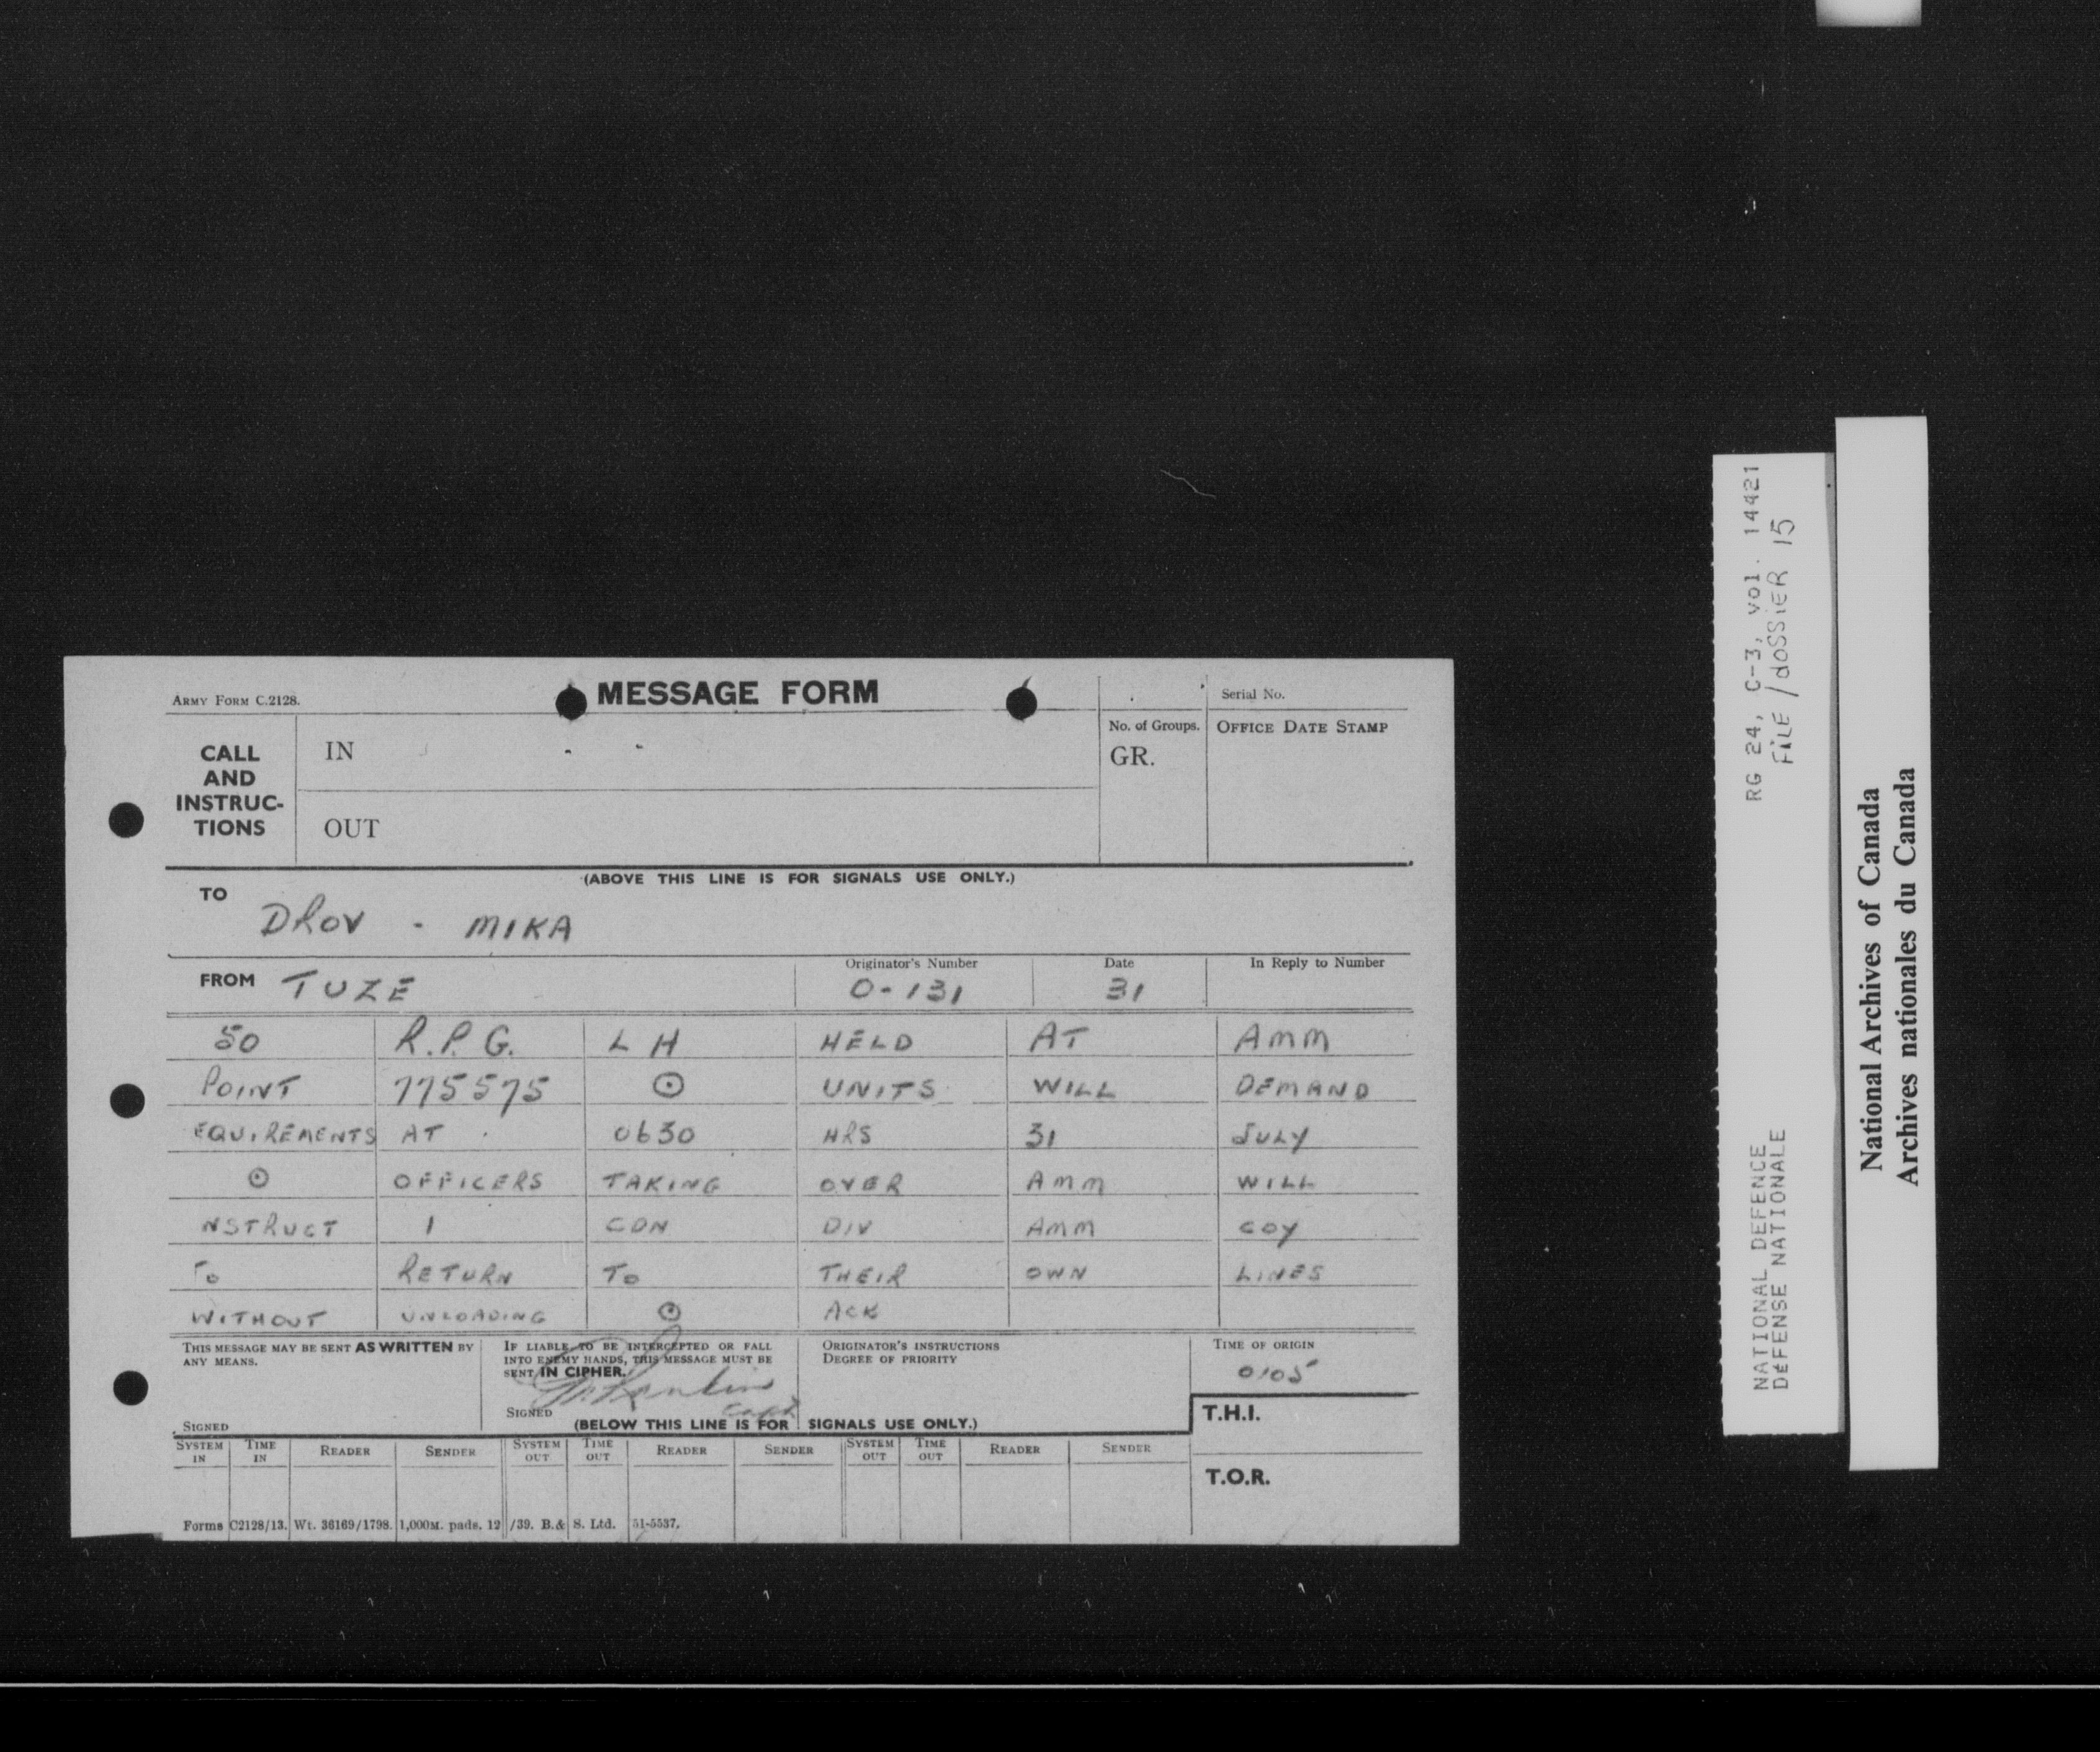 ARMY FORM C.2128.
MESSAGE FORM
Serial No.
CALL AND INSTRUC-TIONS
IN
OUT
No. of Groups.
GR.
OFFICE DATE STAMP
(ABOVE THIS LINE IS FOR SIGNALS USE ONLY.)
TO
DROV - MIKA
FROM TUZE
Originator's Number
O-131
Date
31
In Reply to Number
50 R.P.G. L H HELD AT AMM
POINT 775575 ⊙ UNITS WILL DEMAND
EQUIREMENTS AT 0630 HRS 31 JULY
⊙ OFFICERS TAKING OVER AMM WILL
NSTRUCT 1 CDN DIV AMM COY
TO RETURN TO THEIR OWN LINES
WITHOUT UNLOADING ⊙ ACK
THIS MESSAGE MAY BE SENT AS WRITTEN BY
ANY MEANS.
SIGNED
IF LIABLE TO BE INTERCEPTED OR FALL
INTO ENEMY HANDS, THIS MESSAGE MUST BE
SENT IN CIPHER.
SIGNED Capt
ORIGINATOR'S INSTRUCTIONS
DEGREE OF PRIORITY
TIME OF ORIGIN
0105
(BELOW THIS LINE IS FOR SIGNALS USE ONLY.)
T.H.I.
T.O.R.
SYSTEM IN TIME IN READER SENDER SYSTEM OUT TIME OUT READER SENDER SYSTEM OUT TIME OUT READER SENDER
Forms C2128/13. Wt. 36169/1798. 1,000M. pads. 12/39. B.& S. Ltd. 51-5537.
RG 24, C-3, vol. 14421
FILE/dOSSiER 15
NATIONAL DEFENCE
DéFENSE NATIONALE
National Archives of Canada
Archives nationales du Canada